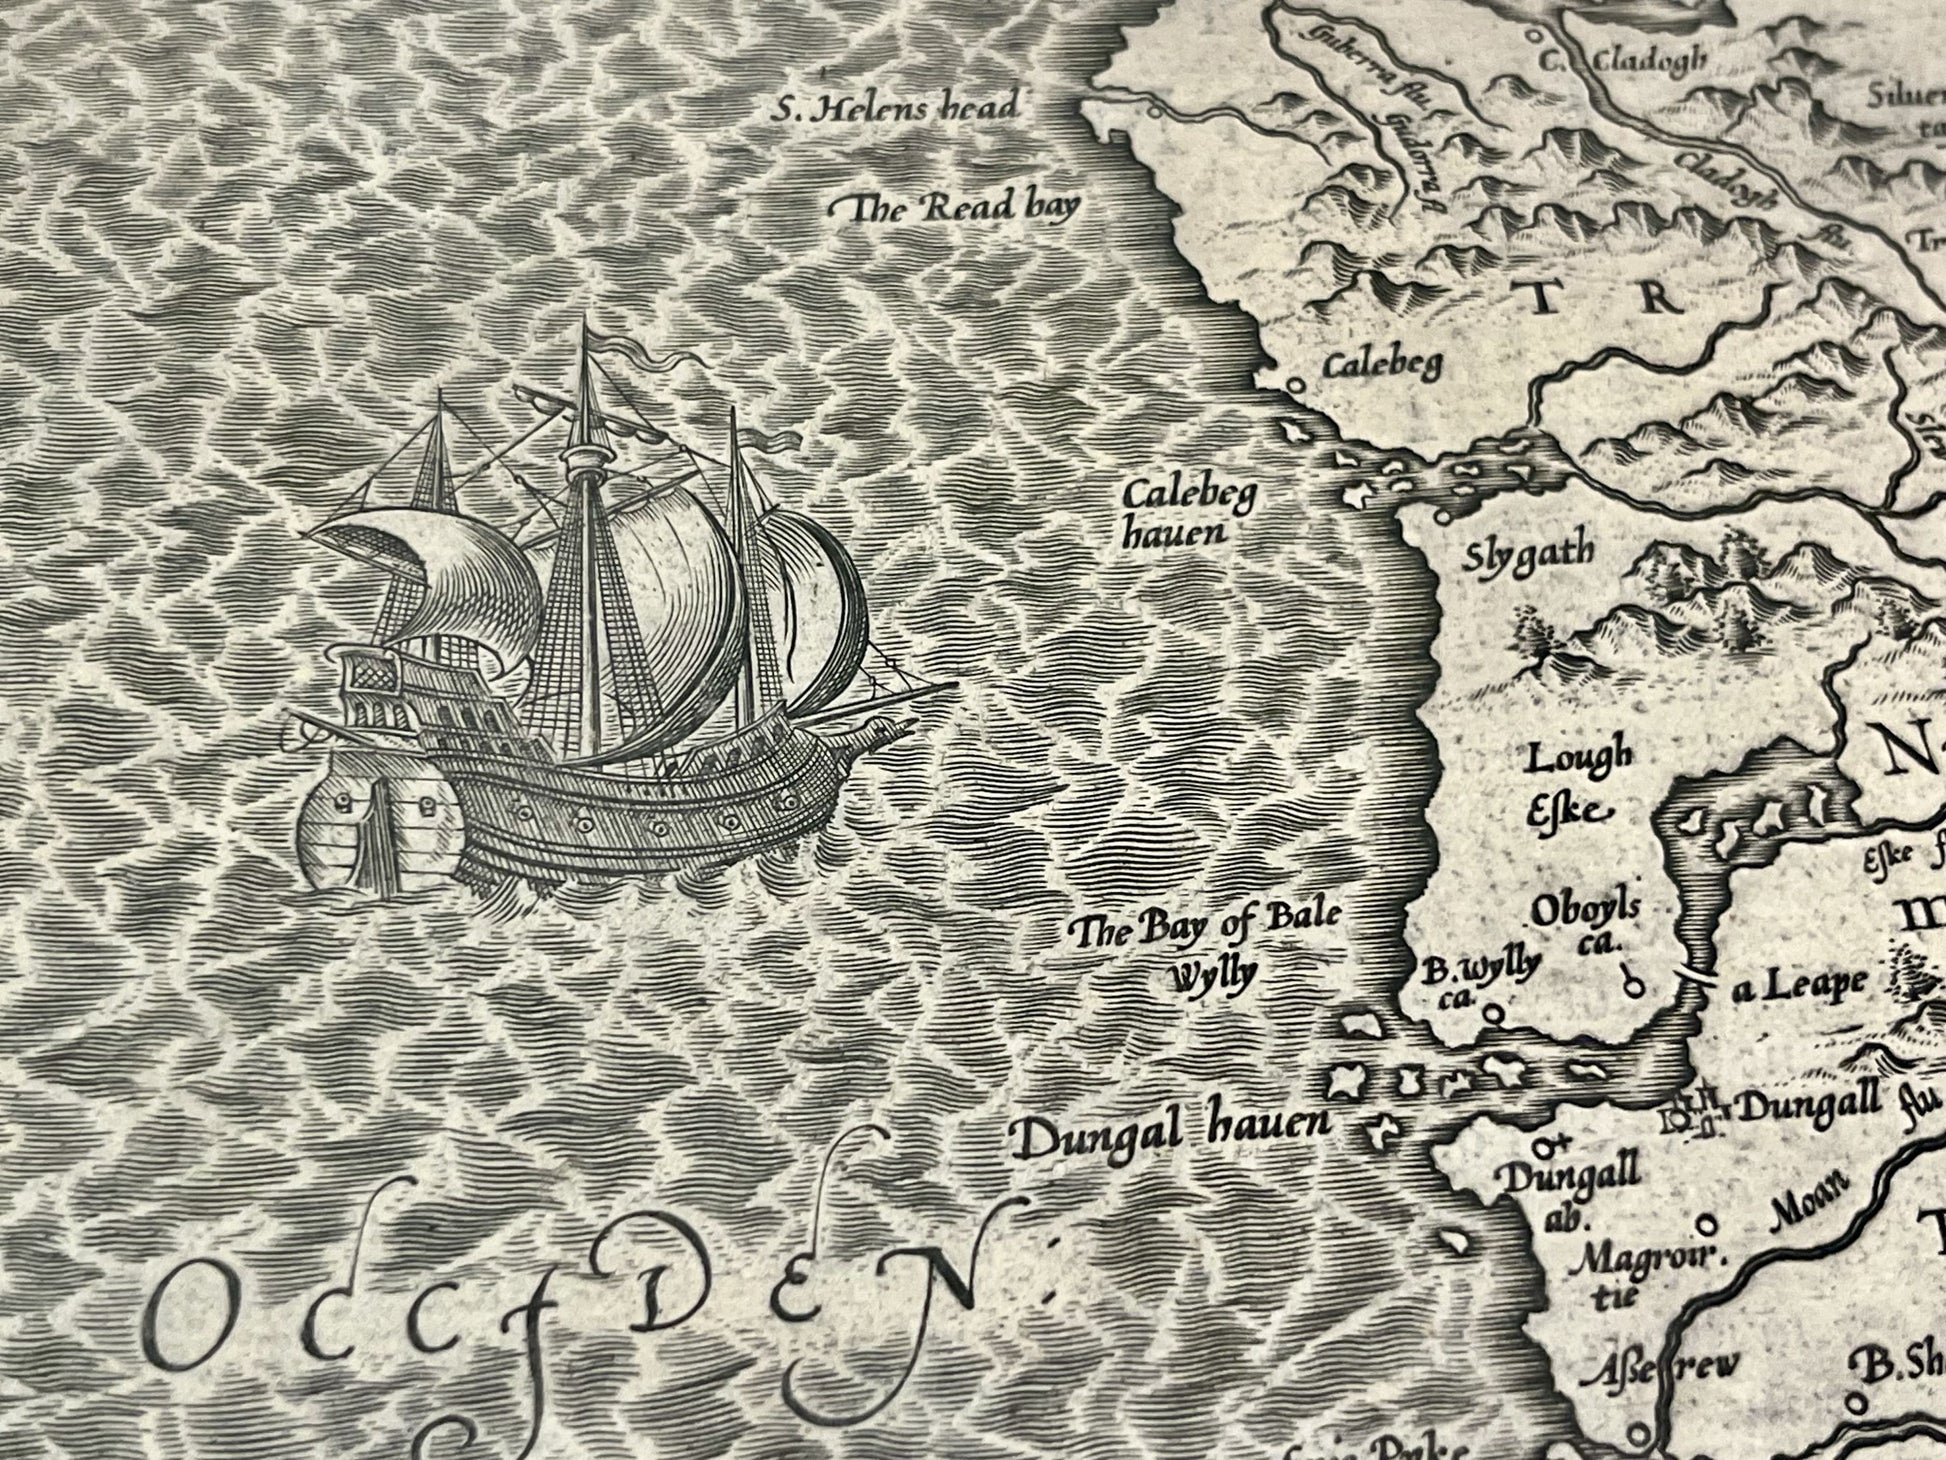 C. Cladogh
S. Helens head
Guberra flu
Guidorra fl
Siluer
Cladogh flu.
The Read bay
T R
Calebeg
Calebeg
hauen
Slygath
Lough
Eſke
Eſke
Oboyls
ca.
The Bay of Bale
Wylly
B. Wylly
ca.
a Leape
Dungal hauen
Dungall flu
Dungall
ab.
Moan
Magroir.
tie
OCCIDEN
Aßerrew
B. Sh